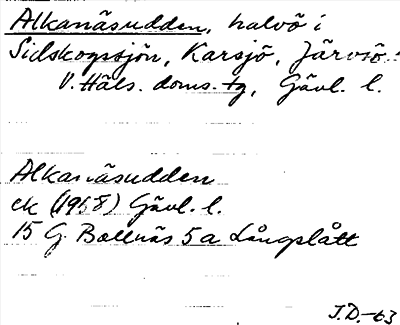 Alkanäsudden, halvö i
Sidskogssjön, Karsjö, Järvsö
V. Häls. doms.-tg, Gävl. l.
Alkanäsudden
ek (1958) Gävl. l.
15 G. Bollnäs 5a Långplått
J.D.-63